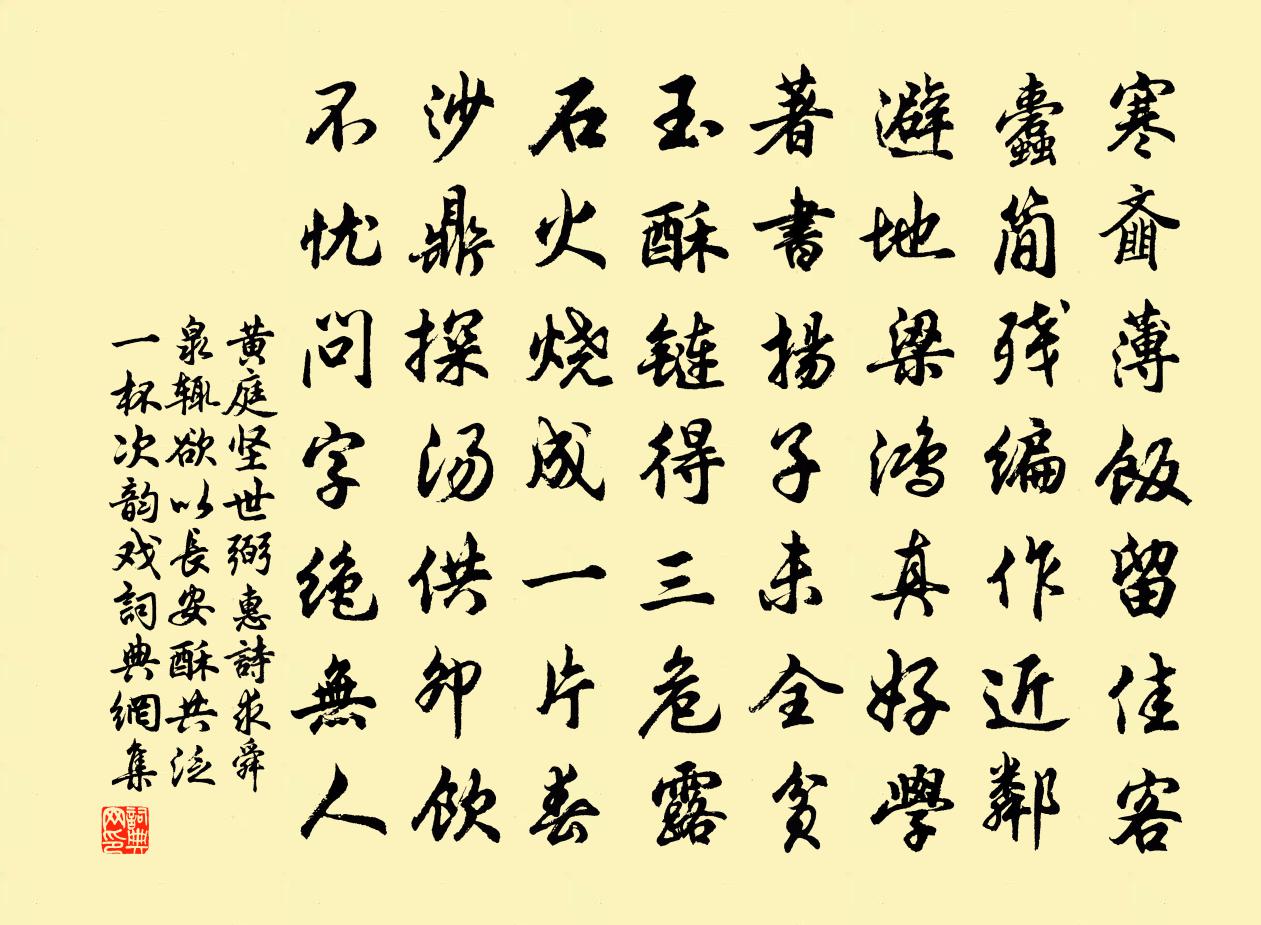 寒齑薄飯留佳客
蠹简残编作近鄰
避地梁鸿真好學
著書揚子未全貧
玉酥鏈得三危露
石火烧成一片春
沙鼎探汤供卯飲
不忧問字絶無人
黄庭坚世弼惠詩求舜
泉辄欲以長安酥共泛
一杯次韵戏詞典網集
詞典网印